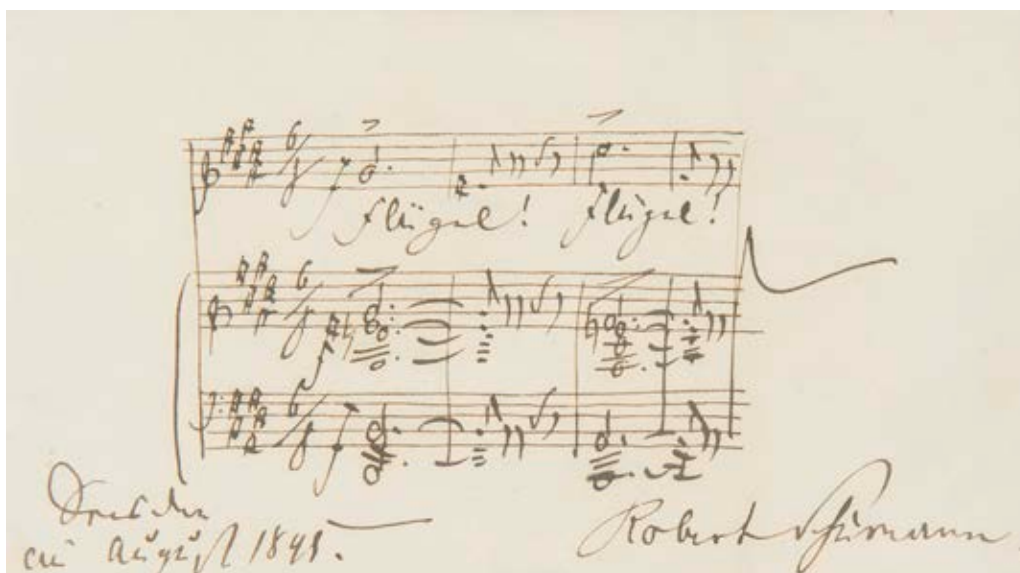 Flügel! Flügel!
Dresden
im August 1845.
Robert Schumann